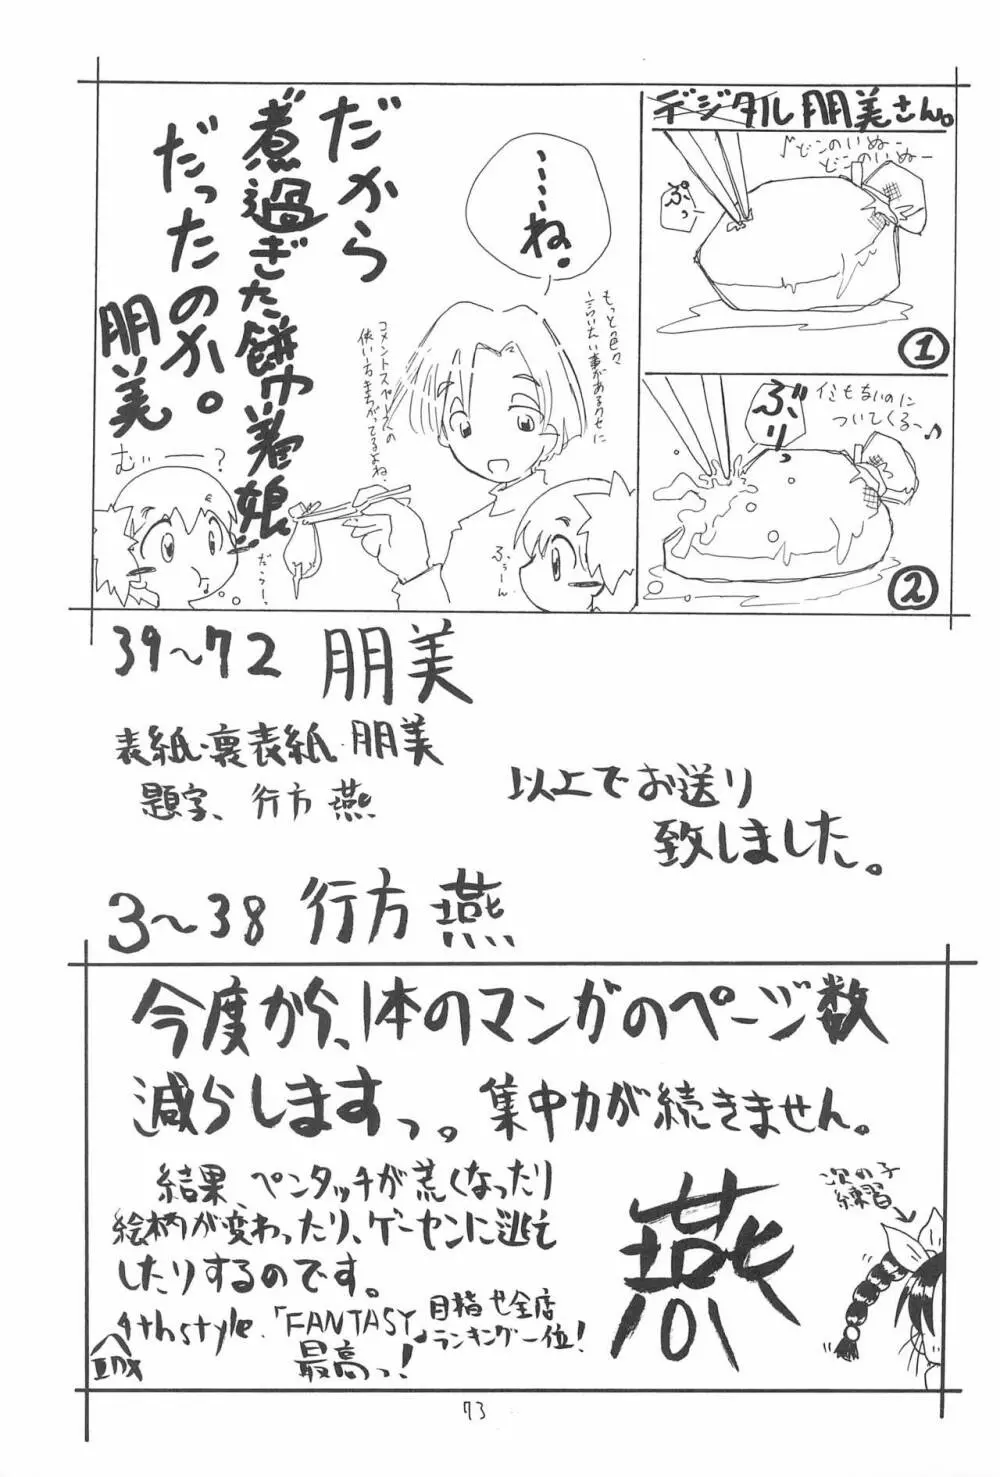 デジタル朋美さん。
♪どこのいぬー
どこのいぬー
ぷっ
①
ぶりっ
イミもないのに
ついてくるー♪
②
……ね。
もっとの色々
言いたい事があるクセに
コメントスペースの
使い方まちがてるよね。
だから
煮過ぎた餅巾着娘
だったのか。
朋美
むぃー?
ぶぅーん
39〜72 朋美
表紙・裏表紙 朋美
題字、行方 燕
以上でお送り
致しました。
3〜38 行方 燕
今度から、1本のマンガのページ数
減らしますっ。集中力が続きません。
結果、ペンタッチが荒くなったり
絵柄が変わったり、ゲーセンに逃え
したりするのです。
4thstyle.「FANTASY」
IIDX
最高っ!
目指せ全店
ランキング一位!
燕
次の子
練習
73